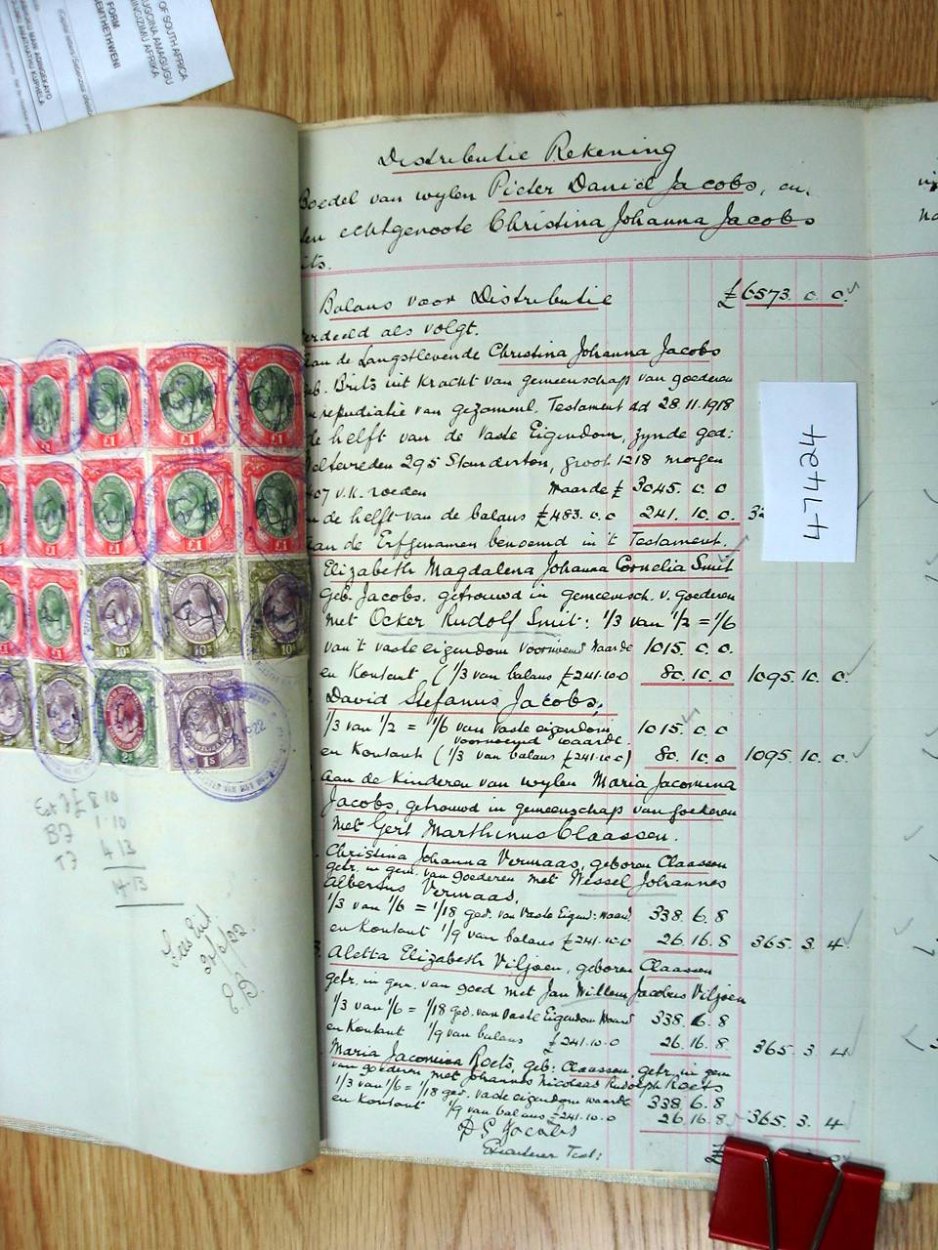 OF SOUTH AFRICA
FORM
Distributie Rekening
Boedel van wylen Pieter Daniël Jacobs, en
echtgenoote Christina Johanna Jacobs
Balans voor Distributie £6573. 0. 0.
verdeeld als volgt.
aan de Langstlevende Christina Johanna Jacobs
Britz uit Kracht van gemeenschap van goederen
repudiatie van gezamenl. Testament dd 28.11.1918
de helft van de Vaste Eigendom, zynde ged:
Weltevreden 295 Standerton, groot 1218 morgen
407 v.k. roeden waarde £ 3045. 0. 0
de helft van de balans £483. 0. 0 241. 10. 0. 32
47424
aan de Erfgenamen benoemd in 't Testament.
Elizabeth Magdalena Johanna Cornelia Smit
geb. Jacobs. getrouwd in gemeensch. v. goederen
met Ocker Rudolf Smit: 1/3 van 1/2 = 1/6
van 't vaste eigendom voornoemd waarde 1015. 0. 0.
en Kontant (1/3 van balans £241.10.0 80. 10. 0 1095. 10. 0.
David Stefanus Jacobs,
1/3 van 1/2 = 1/6 van vaste eigendom 1015. 0. 0
voornoemd waarde.
en Kontant (1/3 van balans £241.10.0) 80. 10. 0 1095. 10. 0.
aan de Kinderen van wylen Maria Jacomina
Jacobs, getrouwd in gemeenschap van goederen
met Gert Marthinus Claassen.
Christina Johanna Vermaas, geboren Claassen
getr. in gem. van goederen met Wessel Johannes
Albertus Vermaas,
1/3 van 1/6 = 1/18 ged. van Vaste Eigend: waard 338. 6. 8
en Kontant 1/9 van balans £241.10.0 26. 16. 8 365. 3. 4
Aletta Elizabeth Viljoen, geboren Claassen
getr. in gem. van goed met Jan Willem Jacobus Viljoen
1/3 van 1/6 = 1/18 ged. van Vaste Eigendom waard 338. 6. 8
en Kontant 1/9 van balans £241.10.0 26. 16. 8 365. 3. 4
Maria Jacomina Roets, geb: Claassen, getr. in gem
van goederen met Johannes Nicolaas Rudolph Roets
1/3 van 1/6 = 1/18 ged. vaste eigendom waarde 338. 6. 8
en Kontant 1/9 van balans £241.10.0 26. 16. 8 365. 3. 4
D S Jacobs
Executeur Test:
£1 £1 £1 £1
£1 £1 £1 £1
£1 10s 10s
1s
8 10
B7 1.10
T7 4 13
14 13